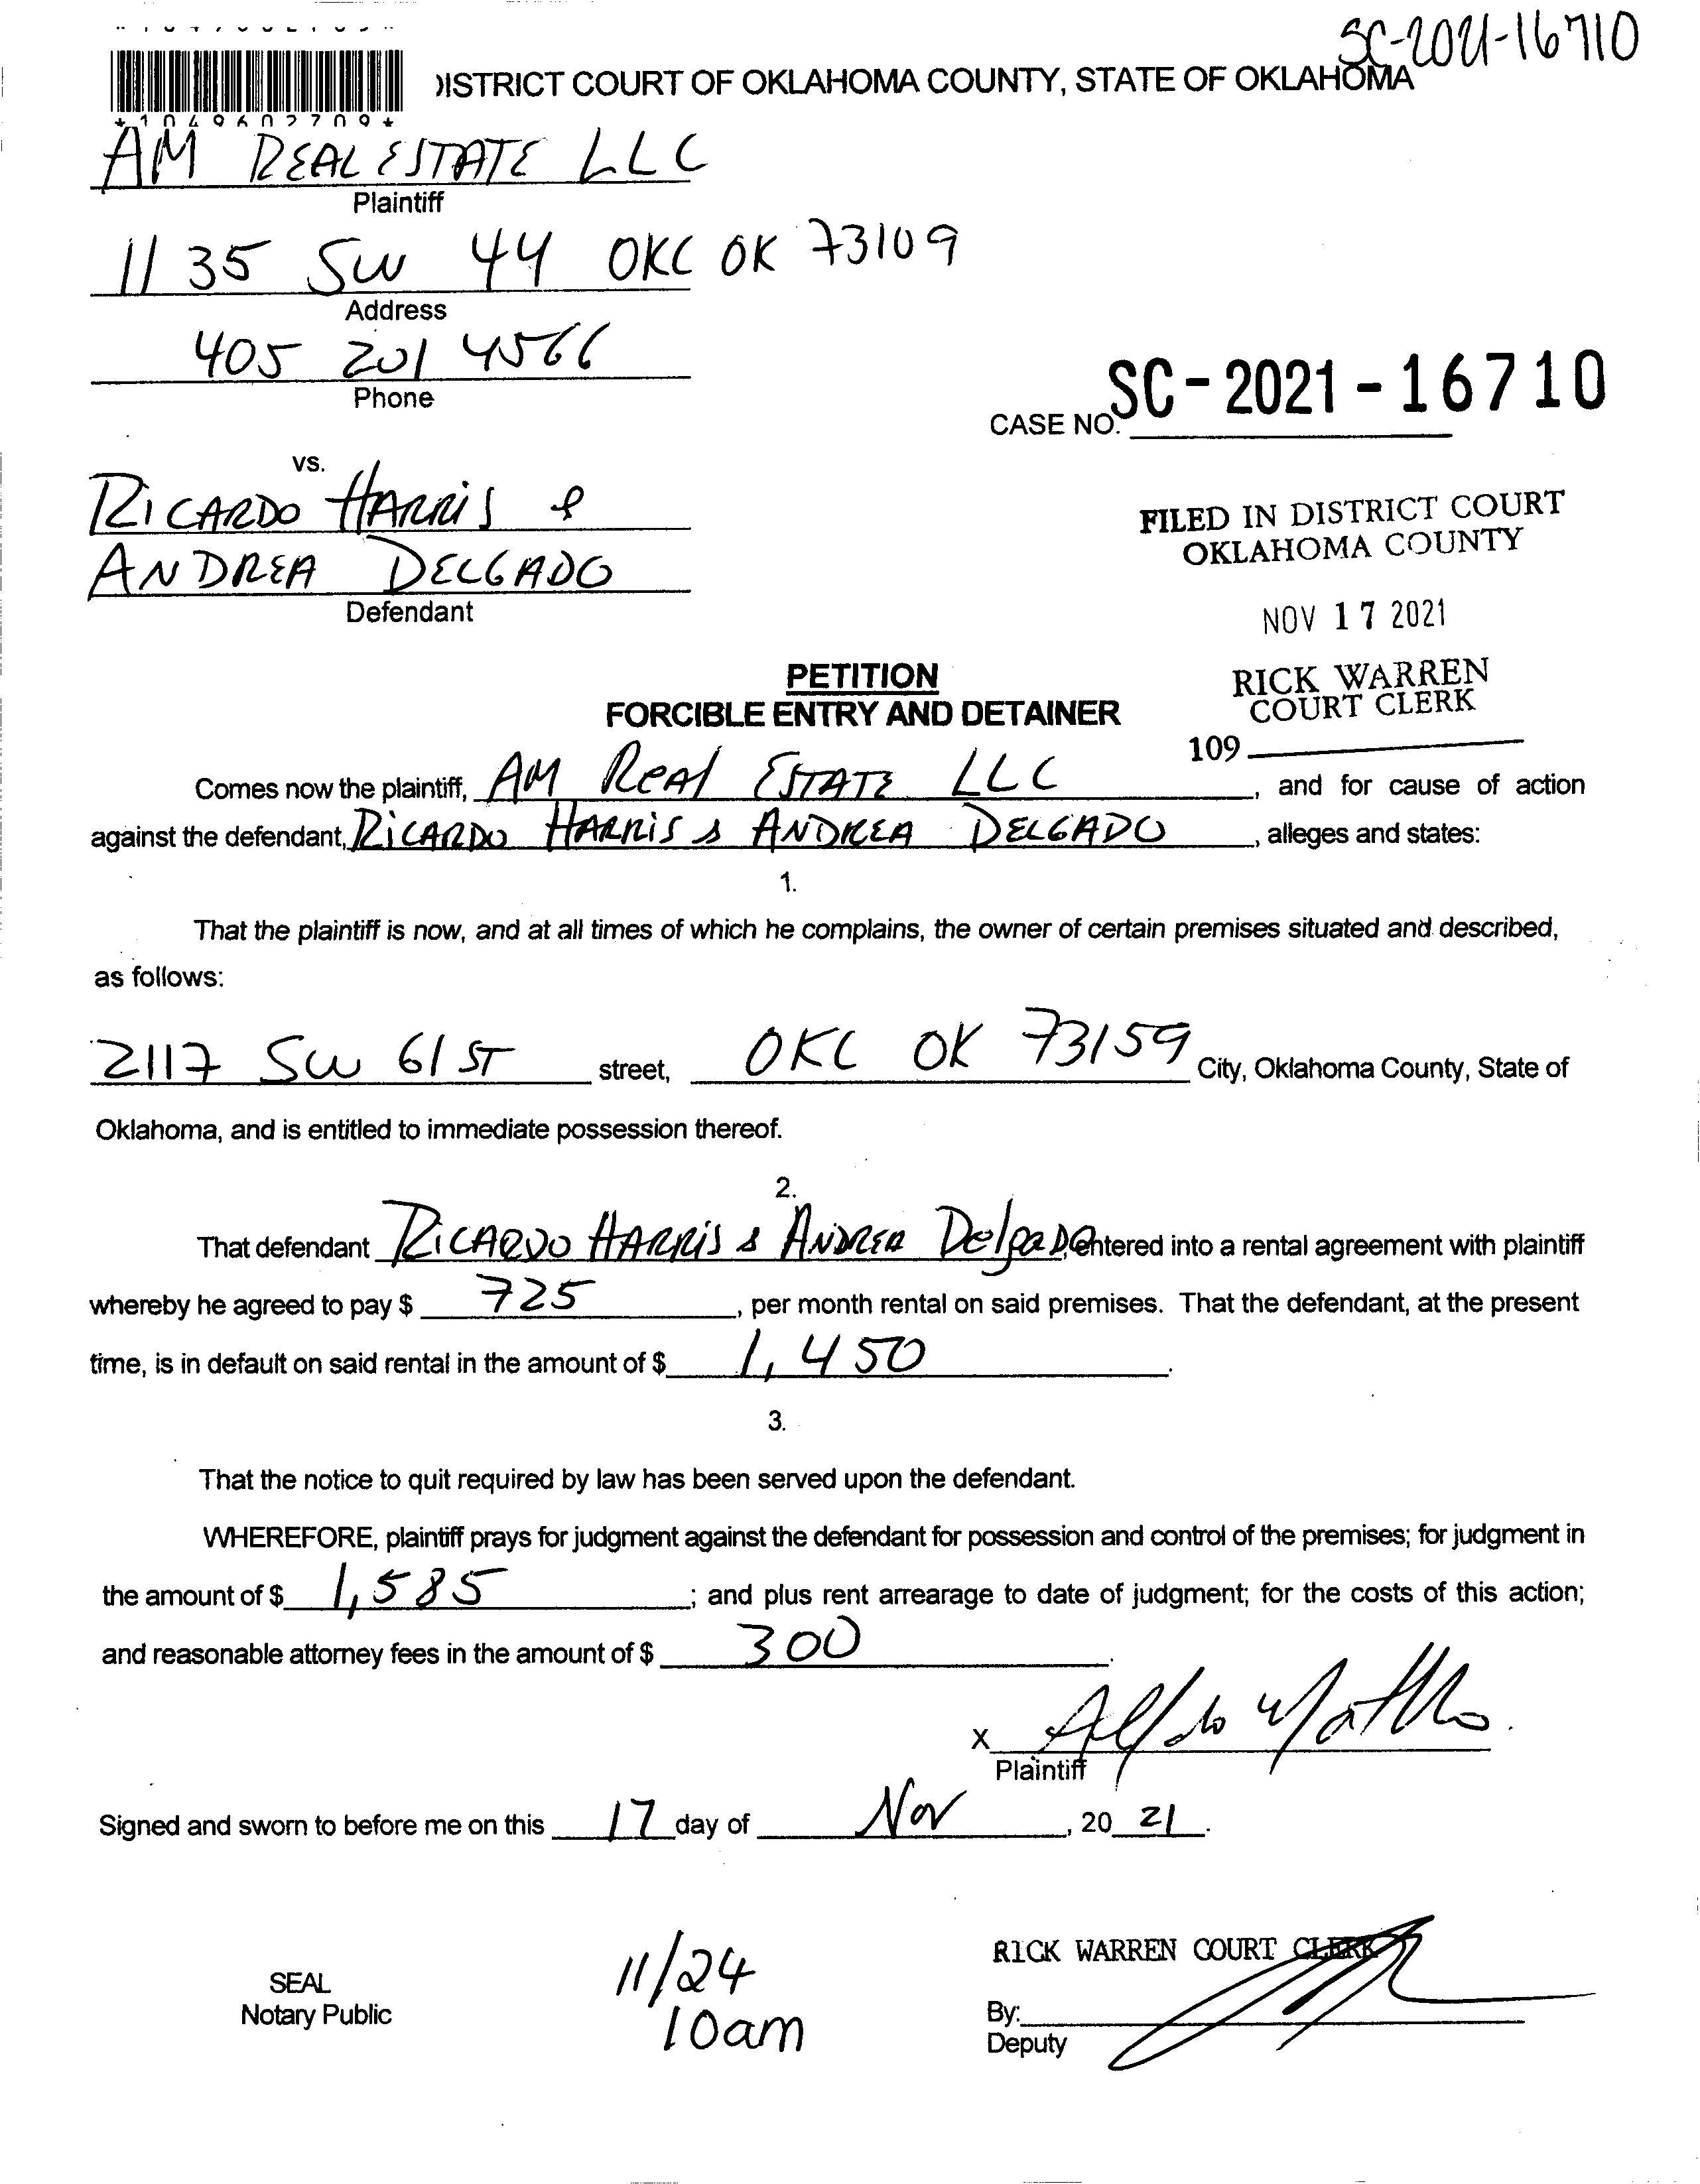 SC-2021-16710
DISTRICT COURT OF OKLAHOMA COUNTY, STATE OF OKLAHOMA
*1049602709*
AM REAL ESTATE LLC
Plaintiff
1135 SW 44 OKC OK 73109
Address
405 201 4566
Phone
CASE NO. SC-2021-16710
vs.
RICARDO HARRIS &
ANDREA DELGADO
Defendant
FILED IN DISTRICT COURT
OKLAHOMA COUNTY
NOV 17 2021
RICK WARREN
COURT CLERK
109
PETITION
FORCIBLE ENTRY AND DETAINER
Comes now the plaintiff, AM Real ESTATE LLC, and for cause of action
against the defendant, RICARDO HARRIS & ANDREA DELGADO, alleges and states:
1.
That the plaintiff is now, and at all times of which he complains, the owner of certain premises situated and described,
as follows:
2117 SW 61 ST street, OKC OK 73159 City, Oklahoma County, State of
Oklahoma, and is entitled to immediate possession thereof.
2.
That defendant RICARDO HARRIS & ANDREA DelgaDO entered into a rental agreement with plaintiff
whereby he agreed to pay $ 725, per month rental on said premises. That the defendant, at the present
time, is in default on said rental in the amount of $ 1,450.
3.
That the notice to quit required by law has been served upon the defendant.
WHEREFORE, plaintiff prays for judgment against the defendant for possession and control of the premises; for judgment in
the amount of $ 1,585; and plus rent arrearage to date of judgment; for the costs of this action;
and reasonable attorney fees in the amount of $ 300.
X
Plaintiff
Signed and sworn to before me on this 17 day of Nov, 20 21.
SEAL
Notary Public
11/24
10am
RICK WARREN COURT CLERK
By:
Deputy